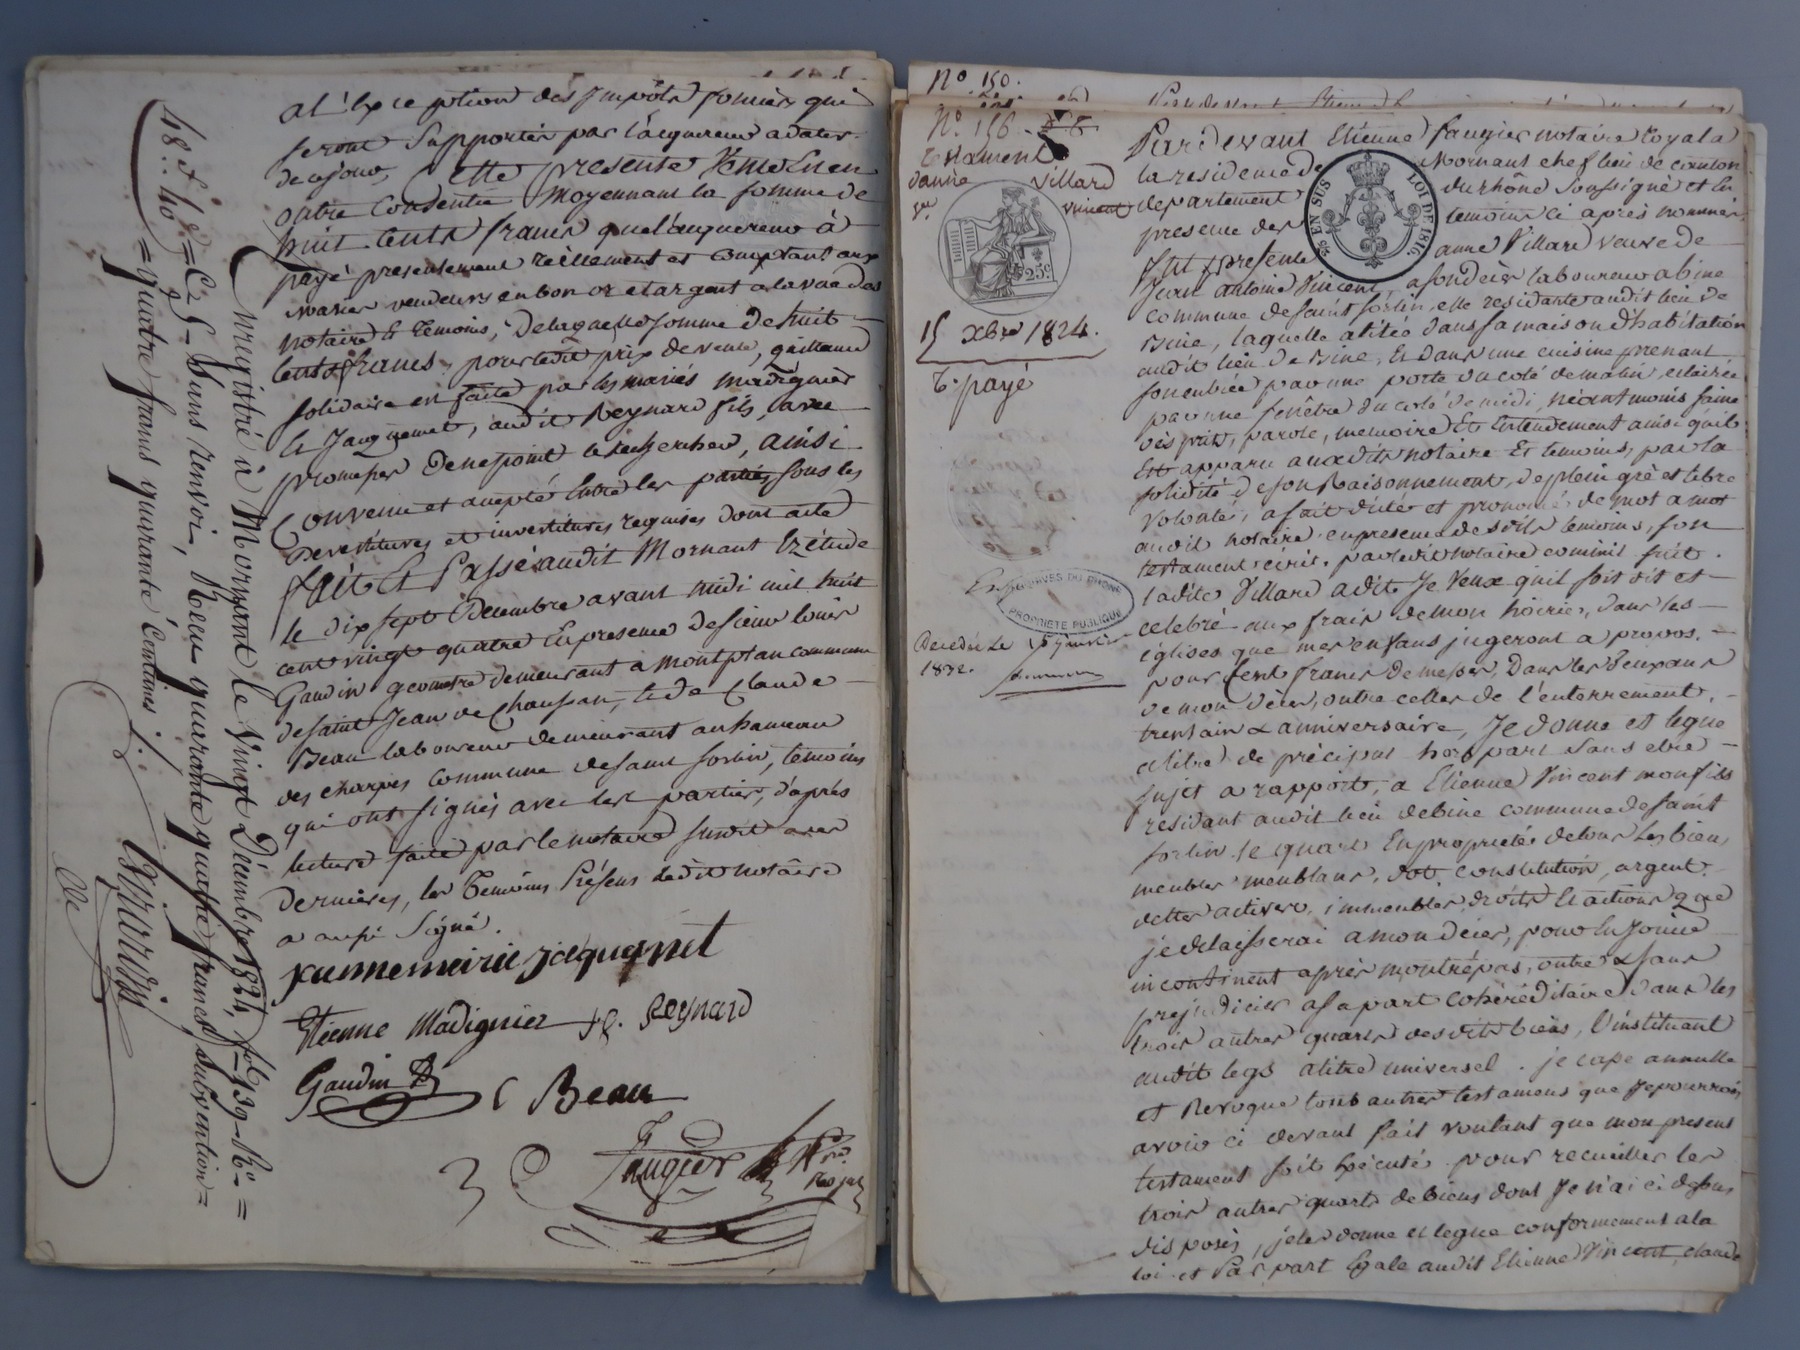 a l'Exception des Impôts fonciers qui
seront Supportés par l'acquereur a dater
de ce jour, Cette presente Vente Est en
outre Consentie Moyennant la somme de
huit cents francs que l'acquereur à
payé presentement réellement et comptant aux
mariés vendeurs en bon or et argent a la vue des
notaire Et temoins, De laquelle somme De huit
Cents francs, pour ledit prix de vente, quittance
solidaire en faite par les mariés Madignier
Et Jacquemet, audit Reynard fils, avec
promesse De ne point le rechercher, ainsi
Convenu et accepté Entre les parties, sous les
Devestitures et investitures requises dont acte
fait Et Passé audit Mornant Ez étude
le dix sept Décembre avant midi mil huit
cent vingt quatre En presence De sieur louis
Gaudin géometre demeurant a Montplan commune
de saint Jean de Chaussan, & de Claude
Beau laboureur demeurant au hameau
des charpies commune de saint sorlin, temoins
qui ont signés avec les parties, d'après
lecture faite par le notaire susdit a ces
Dernières, les Temoins Présens ledit notaire
a aussi Signé.
jeannemeirie jaquemet
Etienne Madignier J. C. Reynard
Gaudin
C Beau
Faugier
Nre
Royal
Enregistré à Mornant le Vingt Décembre 1824, fol 139 Ro
C. 5. Sans renvoi, Reçu quarante quatre francs, subvention
quatre francs quarante Centimes
48. f. 40 c.
No. 150.
No. 156.
Testament
d'anne Villard
Ve Vincent
25c
15 Xbre 1824.
T. payé
ARCHIVES DU RHONE
PROPRIETE PUBLIQUE
Decedée le 15 janvier
1832.
Pardevant Etienne faugier notaire Royal a
la residence de Mornant chef lieu de canton
departement du rhône Soussigné et En
presence des temoins ci après nommés
fut presente anne Villard veuve de
EN SUS
LOI DE 1816
Jean antoine Vincent, a son decès laboureur a bine
commune de saint sorlin, elle residante audit lieu de
Bine, laquelle alitée dans sa maison D'habitation
audit lieu De Bine, Et dans une cuisine prenant
son entrée par une porte du coté de matin, eclairée
par une fenêtre du coté de midi, néantmoins saine
d'esprit, parole, memoire Et Entendement ainsi qu'il
Est apparu auxdits notaire Et temoins, par la
solidité De son Raisonnement, De plein gré et libre
volonté, a fait dicté et prononcé, de mot a mot
audit notaire, en presence desdits temoins, son
testament écrit par ledit notaire comme suit.
ladite Villard a dit, Je Veux qu'il soit dit et
celebré aux frais de mon hoirie, Dans les
églises que mes enfans jugeront a propos,
pour Cent francs De messes, Dans les Deux ans
de mon décès, outre celles de l'enterrement,
trentain & anniversaire, Je donne et legue
a titre de préciput hors part sans etre
sujet a rapport, a Etienne Vincent mon fils
residant audit lieu de bine commune de saint
sorlin le quart En proprieté, de tous Les biens
meubles meublans, dot, constitution, argent,
dettes actives, immeubles, droits Et actions que
je delaisserai a mon décès, pour En Jouir
incontinent après mon trépas, outre & sans
prejudicier a sa part cohéréditaire Dans les
trois autres quarts desdits biens, l'instituant
audit legs a titre universel. je casse annulle
et Revoque tous autres testamens que Je pourrois
avoir ci devant fait voulant que mon present
testament soit Exécuté. pour recueiller les
trois autres quarts de biens dont Je n'ai ci dessus
disposés, je les donne et legue conformement a la
loi et Par part Egale audit Etienne Vincent, claude